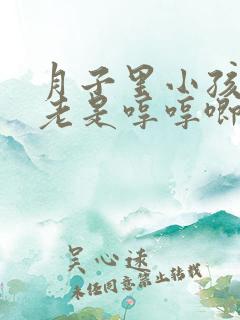 月子里小孩
老是哼哼唧
吴心远
未经同意禁止转载